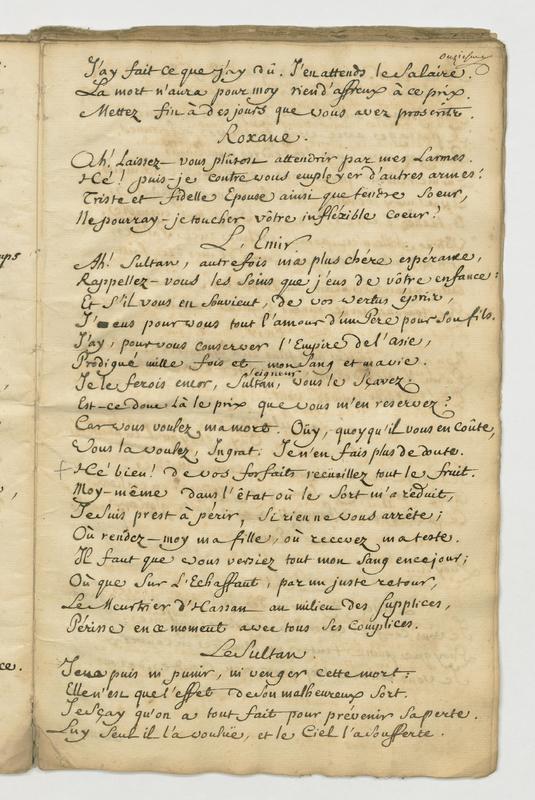 Onziesme
J'ay fait ce que j'ay dû. J'en attends le Salaire.
La mort n'aura pour moy rien d'affreux à ce prix.
Mettez fin à des jours que vous avez proscrits.
Roxane.
Ah! Laissez-vous plûtost attendrir par mes Larmes.
Hé! puis-je contre vous employer d'autres armes?
Triste et fidelle Epouse ainsi que tendre Soeur,
Ne pourray-je toucher vôtre infléxible coeur?
L'Emir.
Ah! Sultan, autrefois ma plus chére espérance,
Rappellez-vous les Soins que j'eus de vôtre enfance:
Et S'il vous en Souvient, de vos vertus épris,
J'eus pour vous tout l'amour d'un Pere pour Son fils.
J'ay, pour vous conserver l'Empire de l'asie,
Prodigué mille fois et mon Sang et ma vie.
Seigneur
Je le ferois encor, Sultan, vous le Sçavez;
Est-ce donc là le prix que vous m'en reservez?
Car vous voulez ma mort. Oüy, quoy qu'il vous en coûte,
Vous la voulez, Ingrat. Je n'en fais plus de doute.
Hé bien! de vos forfaits recueillez tout le fruit.
Moy-même dans l'état où le Sort m'a réduit,
Je Suis prest à périr, Si rien ne vous arrête;
Où rendez-moy ma fille, où recevez ma teste.
Il faut que vous versiez tout mon Sang en ce jour;
Où que Sur L'Echaffaut, par un juste retour,
Le Meurtrier d'Hassan au milieu des Supplices,
Périsse en ce moment avec tous Ses Complices.
Le Sultan.
Je ne puis ni punir, ni venger cette mort:
Elle n'est que l'effet de Son malheureux Sort.
Je Sçay qu'on a tout fait pour prévenir Sa perte.
Luy Seul il l'a vouluë, et le Ciel l'a Soufferte.